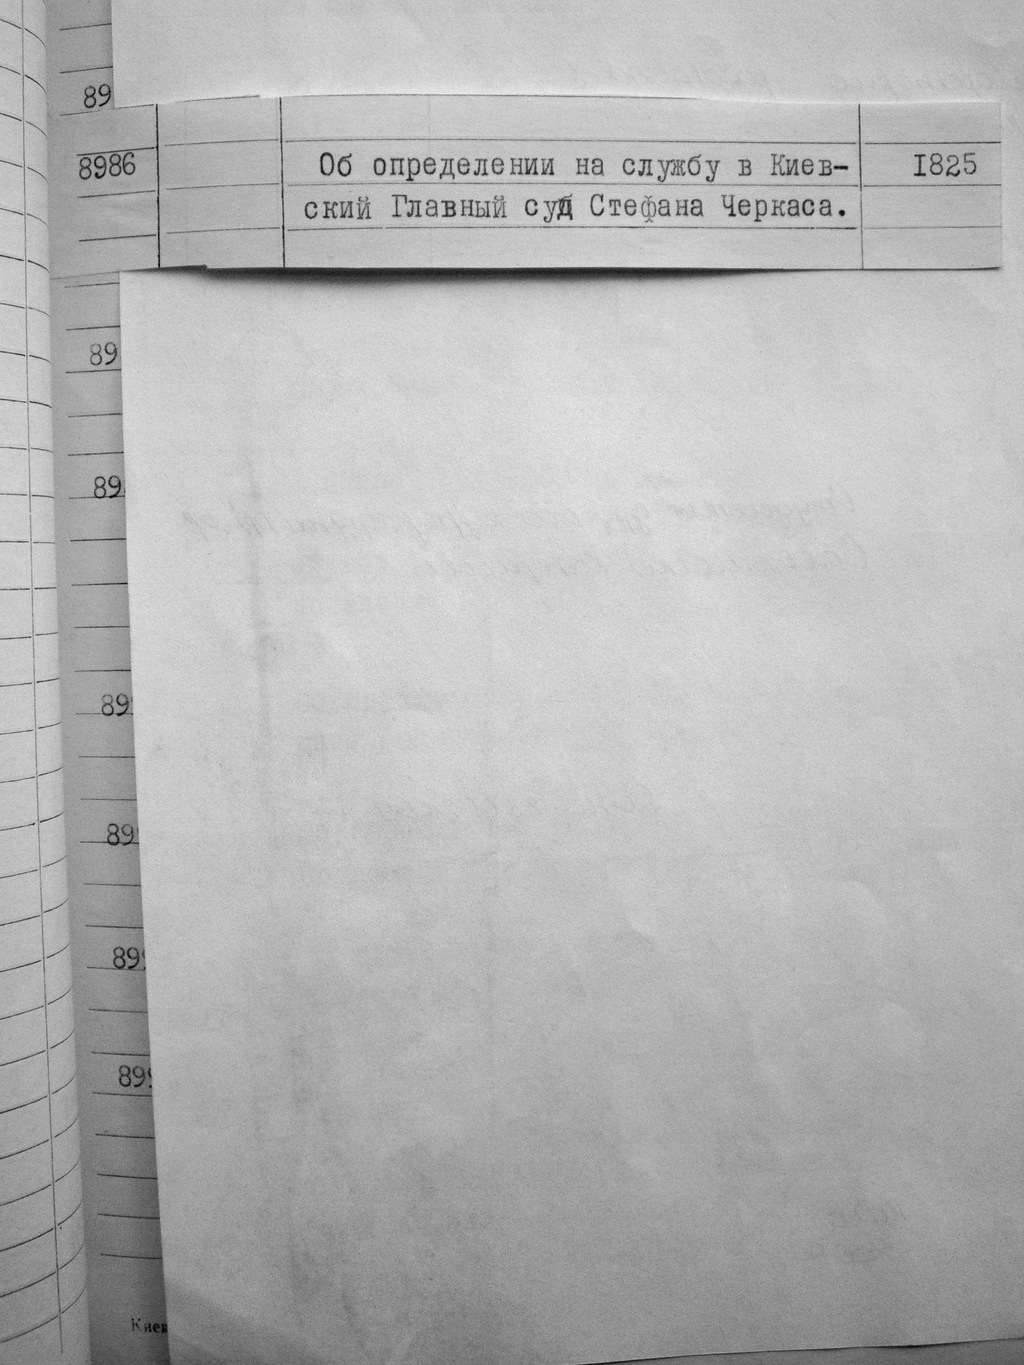 89
8986 Об определении на службу в Киев- 1825
ский Главный суд Стефана Черкаса.
89
89
899
899
899
899
Киев